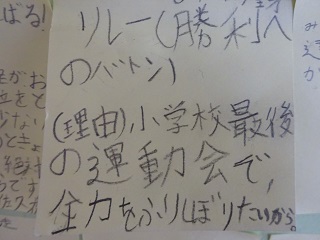 リレー(勝利へ
のバトン)
(理由)小学校最後
の運動会で、
全力をふりしぼりたいから。
ばる!